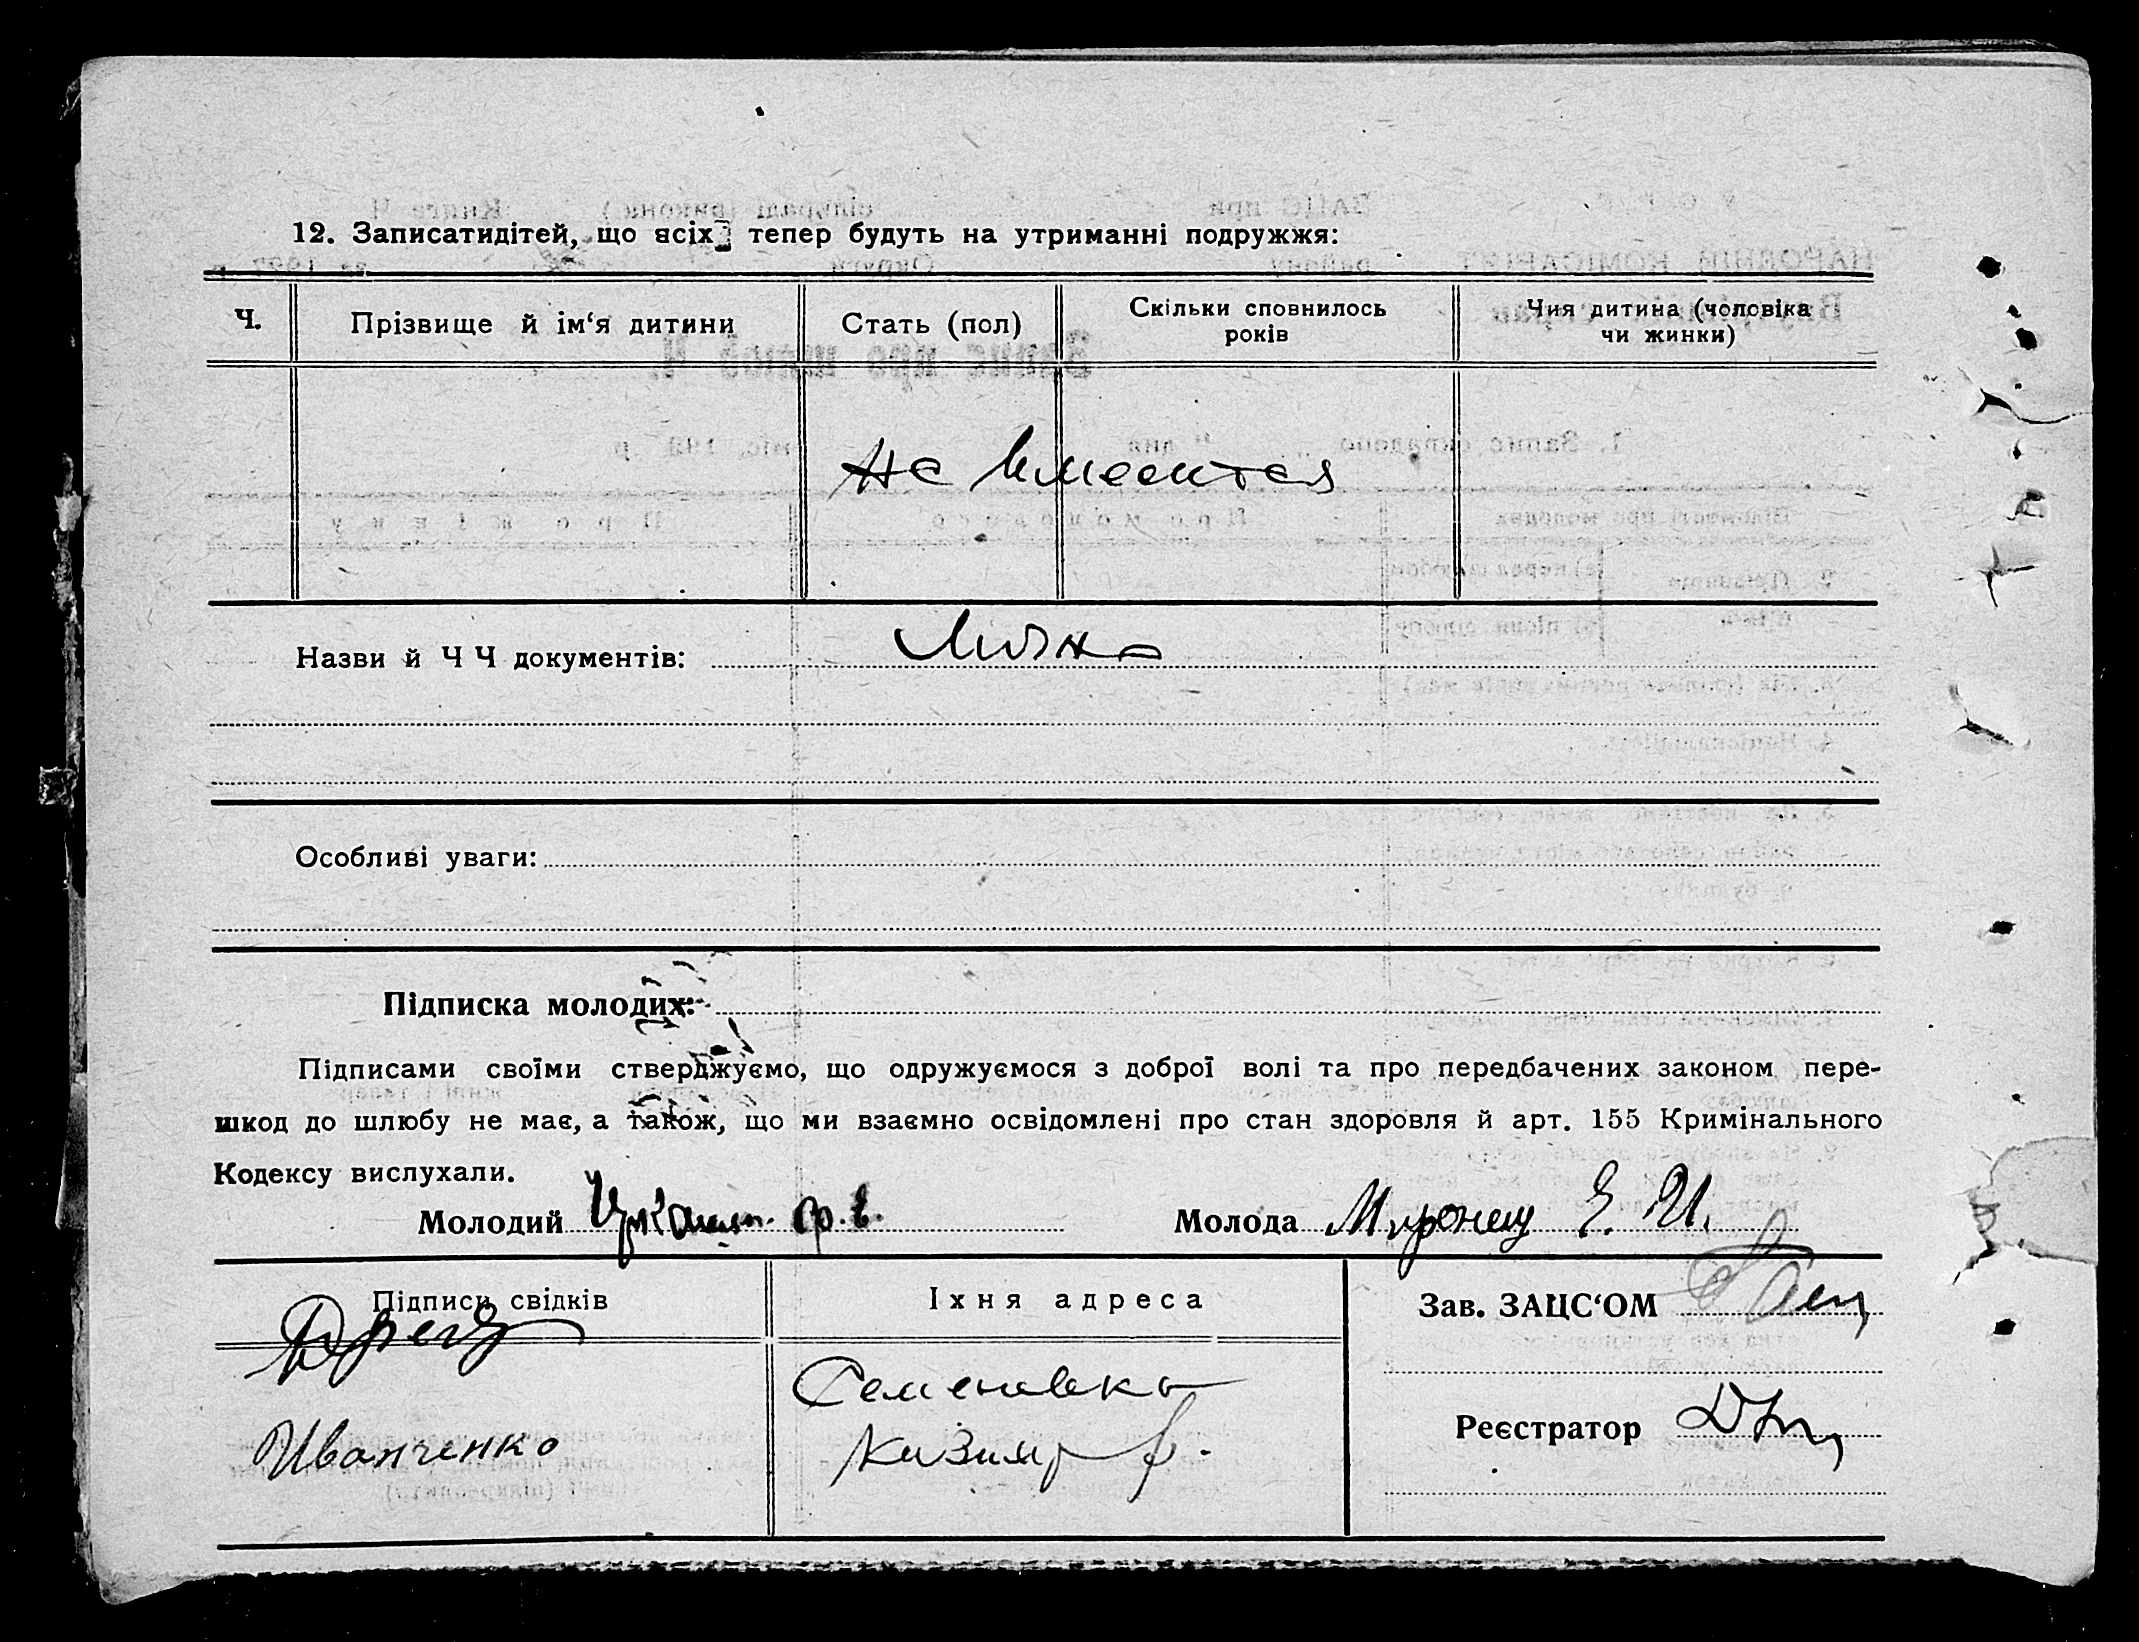 12. Записатидітей, що всіх тепер будуть на утриманні подружжя:
Ч.
Прізвище й ім‘я дитини
Стать (пол)
Скільки сповнилось
років
Чия дитина (чоловіка
чи жинки)
не имеются
Назви й ЧЧ документів:
Особливі уваги:
Підписка молодих:
Підписами своїми стверджуємо, що одружуємося з доброї волі та про передбачених законом пере-
шкод до шлюбу не має, а також, що ми взаємно освідомлені про стан здоровля й арт. 155 Кримінального
Кодексу вислухали.
Молодий
Молода Миронец Е. И.
Підписи свідків
Іхня адреса
Зав. ЗАЦС‘ОМ
Семеновка
Иванченко
Реєстратор